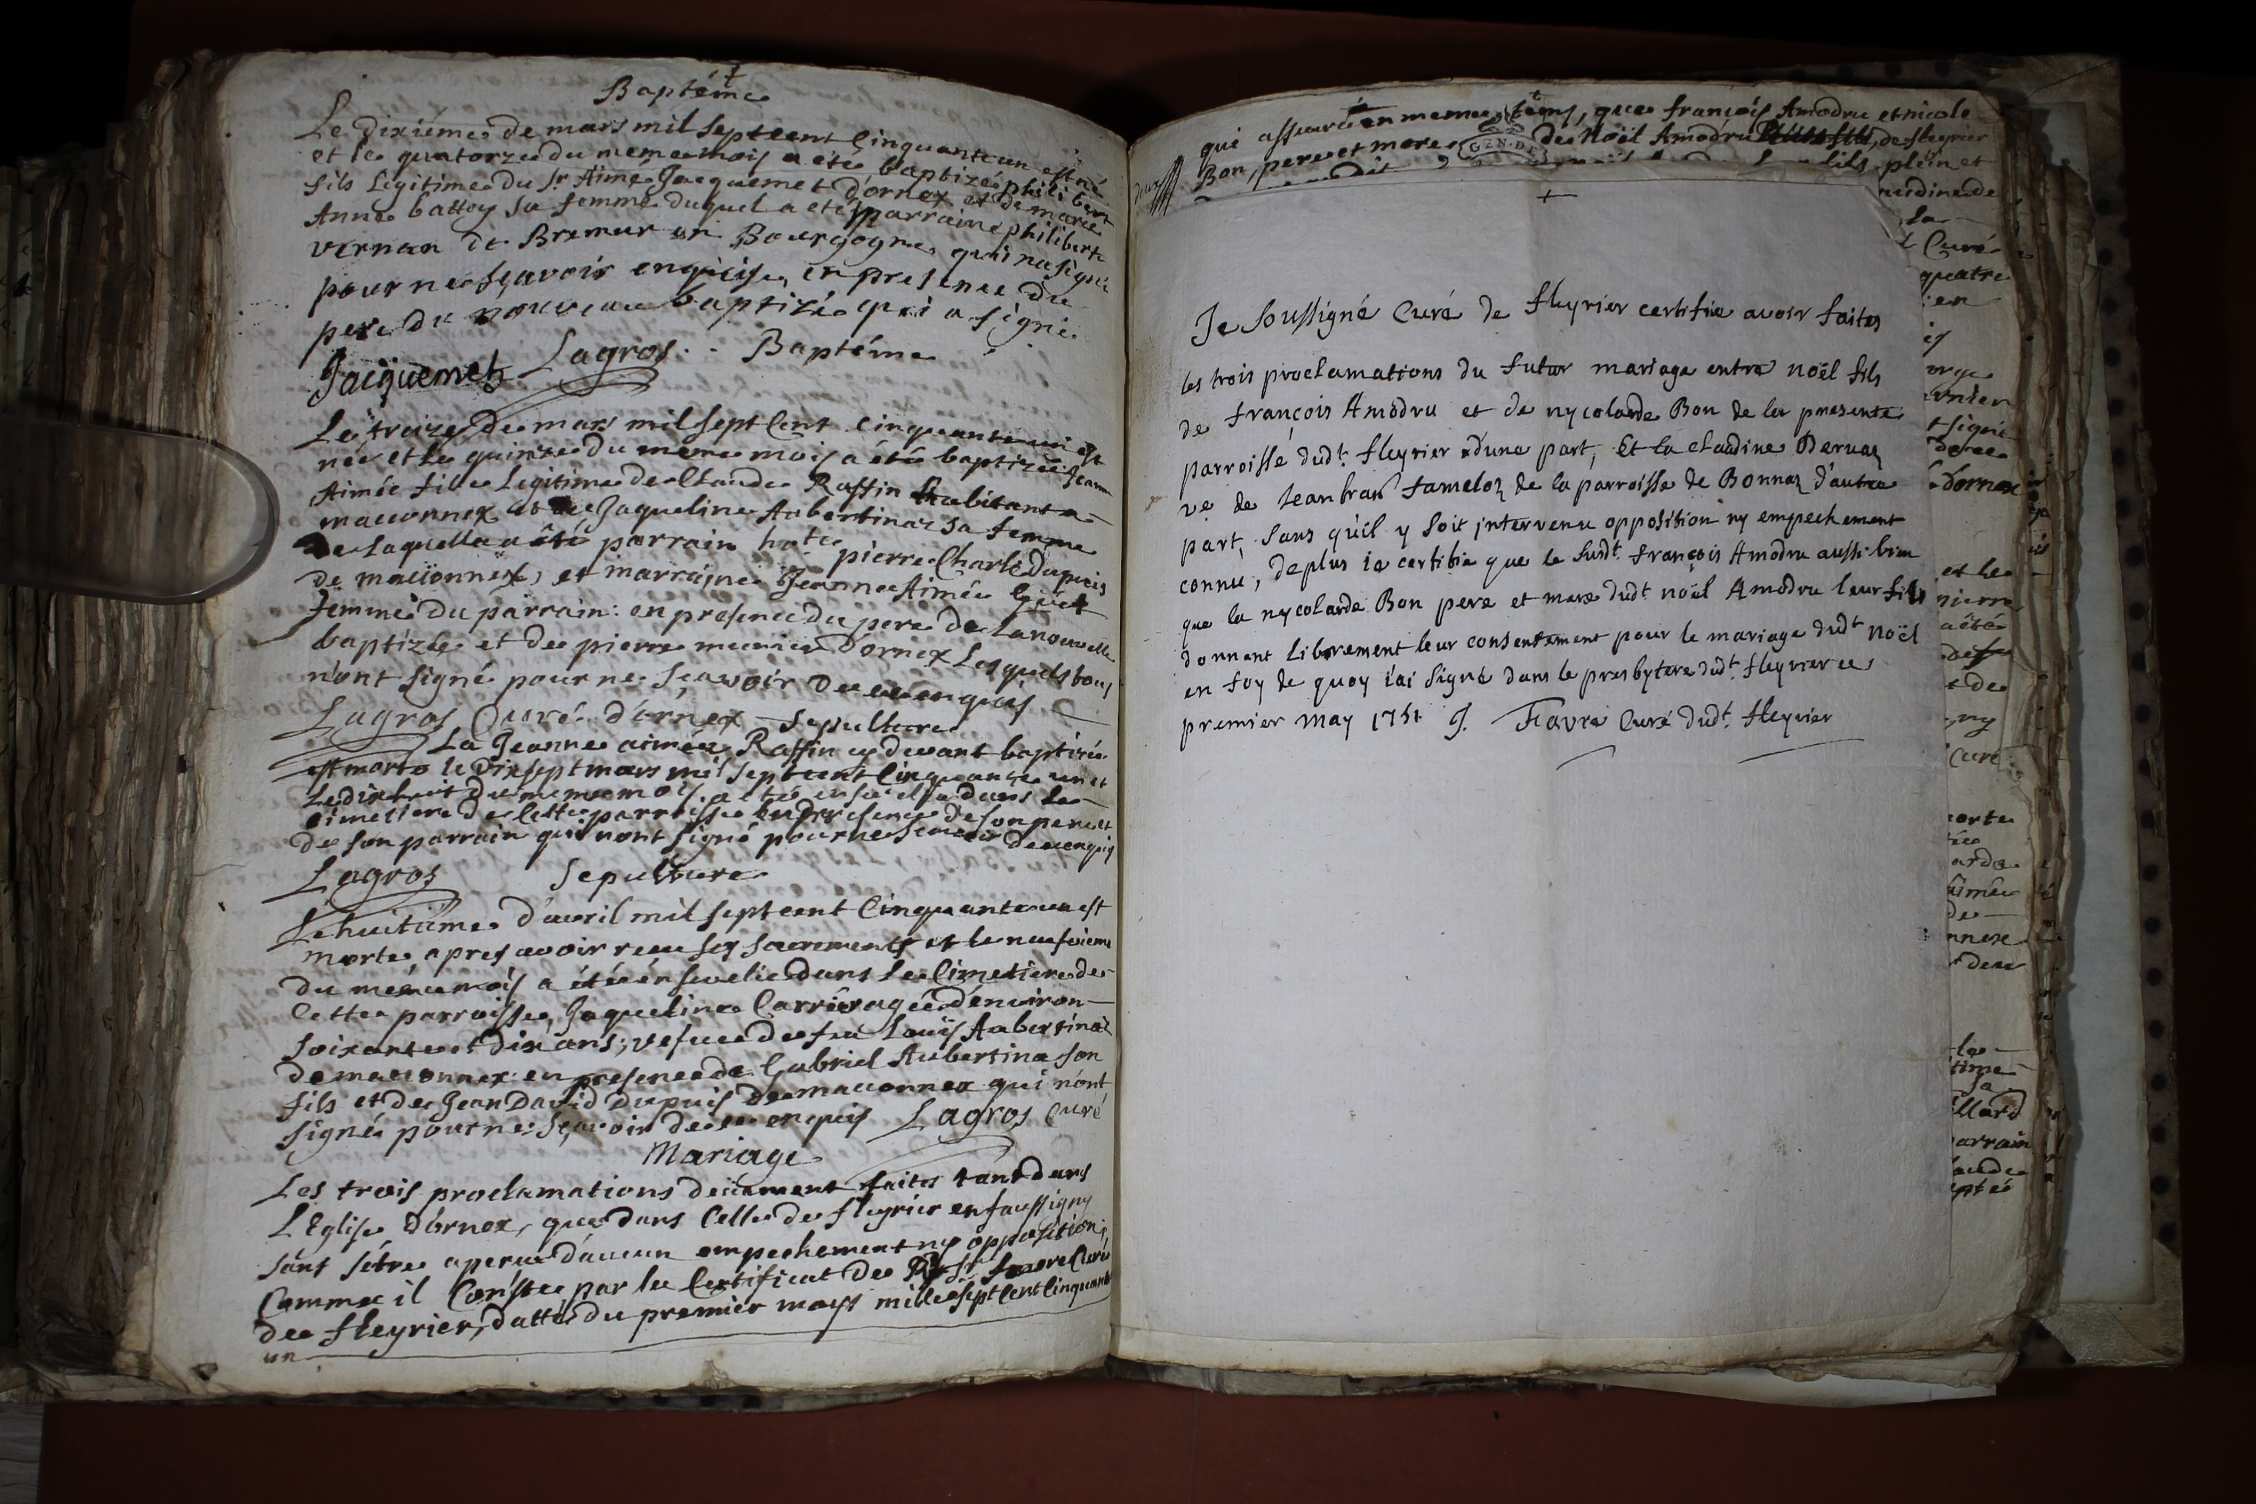 Baptéme
Le dixiéme de mars mil septcent Cinquante un est né
et le quatorze du meme mois a eté baptizé philibert
fils Legitime du Sr Aimé Jacquemet d'ornex et de marie
Anne battoy sa femme duquel a eté parrain philibert
vernan de Bremur en Bourgogne, qui na signé
pour ne sçavoir enquis, en presence du
pere du nouveau baptizé qui a signé
Jacquemet Lagros. Baptéme
Le treize de mars mil sept Cent Cinquante un est
née et le quinze du meme mois a été baptizée Jeanne
Aimée fille Legitime de Claude Raffin habitant a
maconnex et de Jaqueline Aubertinaz sa femme
de laquelle a été parrain hote pierre Charle Dupuis
de maconnex, et marraine Jeanne Aimée
femme du parrain: en presence du pere de la nouvelle
baptizée et de pierre munier d'ornex Lesquels tous
n'ont signé pour ne sçavoir de ce enquis
Lagros Curé d'ornex Sepulture
La Jeanne aimée Raffin cy devant baptizée
est morte le dixsept mars mil septcent Cinquante un et
Le dixhuit du meme mois a eté ensevelie dans le
cimetiere de cette parroisse en presence de son pere et
de son parrain qui nont signé pour ne scavoir de ce enquis
Lagros Sepulture
Le huitiéme d'avril mil septcent Cinquante un est
morte, apres avoir receu ses sacrements et le neufvieme
du meme mois a étée énsevelie dans le Cimetiere de
Cette parroisse, Jaqueline Carrier agée d'environ
soixante et dix ans, vefve de feu Louis Aubertinaz
de maconnex: en presence de Gabriel Aubertina son
fils et de Jean David Dupuis de maconnex qui n'ont
signé pour ne sçavoir de ce enquis Lagros Curé
Mariage
Les trois proclamations deüement faites tant dans
L'Eglise d'ornex, que dans Celle de fleyrier en faussigny
sans s'étre aperçu d'aucun empechement ny opposition,
Comme il Conste par le Certificat de Rd Sr favre Curé
de fleyrier, datté du premier mays mille sept Cent Cinquante
un
qui assure en meme tems, que françois Amodru et nicole
Bon, pere et mere de Noël Amodru, de fleyrier
GEN·DE
Je Soussigné Curé de fleyrier certifie avoir faites
les trois proclamations du futur mariage entre noël fils
de françois Amodru et de nycolarde Bon de la presente
parroisse dudt fleyrier d'une part, Et la claudine Dervaz
ve de Jean fran Tameloz de la parroisse de Bonnaz d'autre
part, sans qu'il y soit intervenu opposition ny empechement
connu; deplus ie certifie que le Susdt françois Amodru aussi bien
que la nycolarde Bon pere et mere dudt noël Amodru leur fils
donnent librement leur consentement pour le mariage dudt Noël
en foy de quoy i'ai signé dans le presbytere dudt fleyrier ce
premier may 1751 J. Favre Curé dudt fleyrier